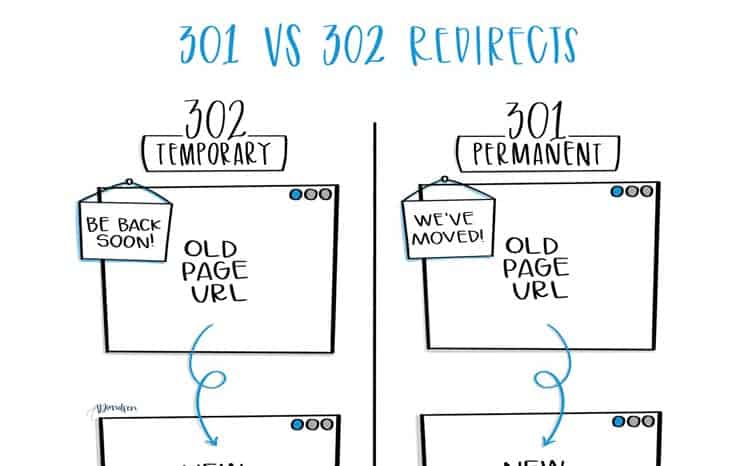 301 VS 302 REDIRECTS
302
TEMPORARY
BE BACK
SOON!
OLD
PAGE
URL
301
PERMANENT
WE'VE
MOVED!
OLD
PAGE
URL
NEW
NEW